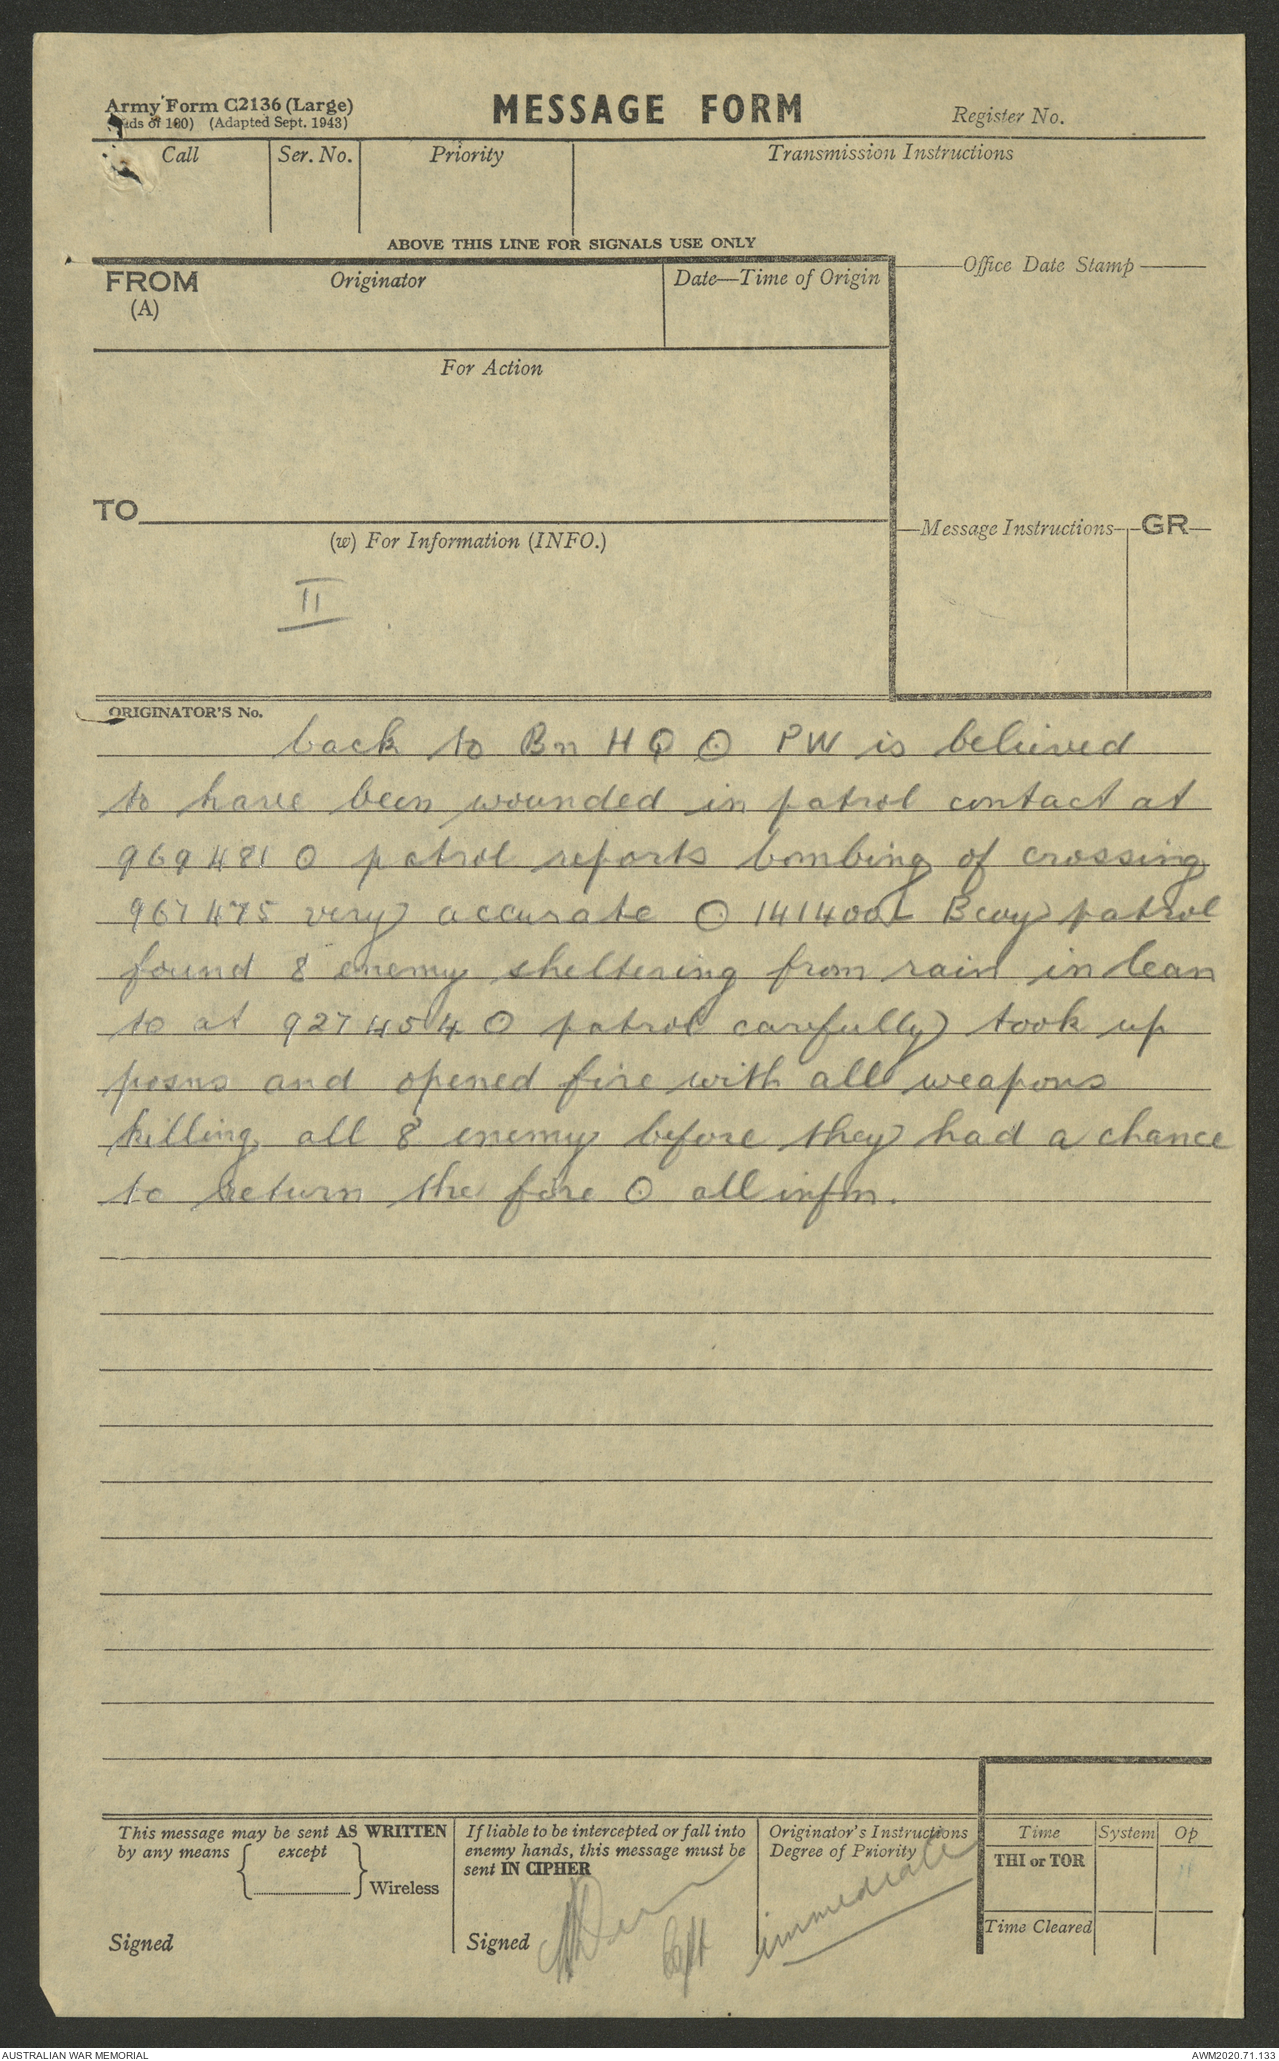 Army Form C2136 (Large)
MESSAGE FORM
Register No.
(Pads of 100) (Adapted Sept. 1943)
Call
Ser. No.
Priority
Transmission Instructions
ABOVE THIS LINE FOR SIGNALS USE ONLY
FROM
(A)
Originator
Date—Time of Origin
Office Date Stamp
For Action
TO
(w) For Information (INFO.)
Message Instructions
GR
II
ORIGINATOR'S No.
back to Bn HQ O PW is believed
to have been wounded in patrol contact at
969481 O patrol reports bombing of crossing
967475 very accurate O 141400L B coy patrol
found 8 enemy sheltering from rain in lean
to at 927454 O patrol carefully took up
posns and opened fire with all weapons
killing all 8 enemy before they had a chance
to return the fire O all infm.
This message may be sent AS WRITTEN
by any means
except
Wireless
Signed
If liable to be intercepted or fall into
enemy hands, this message must be
sent IN CIPHER
Signed
Capt
Originator's Instructions
Degree of Priority
immediate
Time
System
Op
THI or TOR
Time Cleared
AUSTRALIAN WAR MEMORIAL
AWM2020.71.133